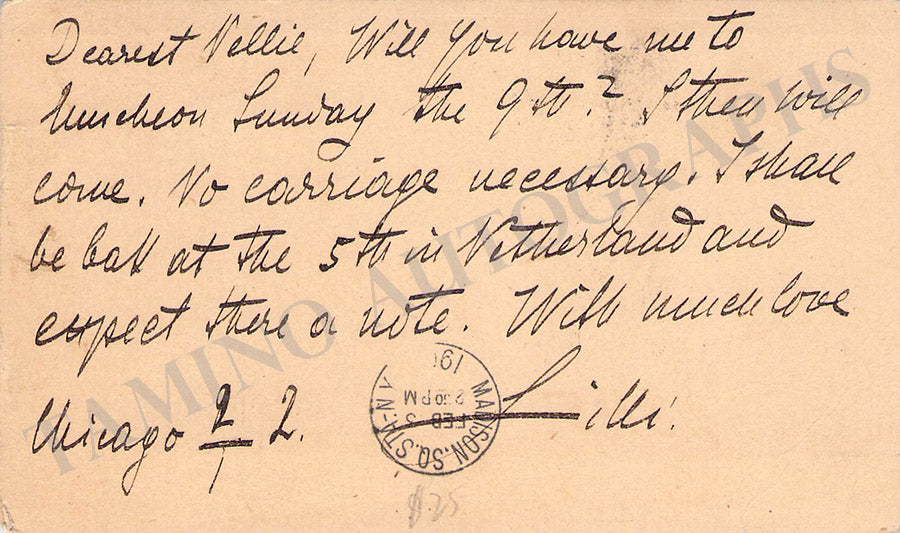 Dearest Nellie, Will you have me to
luncheon Sunday the 9th? I then will
come. No carriage necessary. I shall
be bak at the 5th in Netherland and
expect there a note. With much love
Lilli.
Chicago 2/ 2.
MADISON.SQ.STA. N.Y.
FEB
2 30 PM
19
$25
TAMINO AUTOGRAPHS